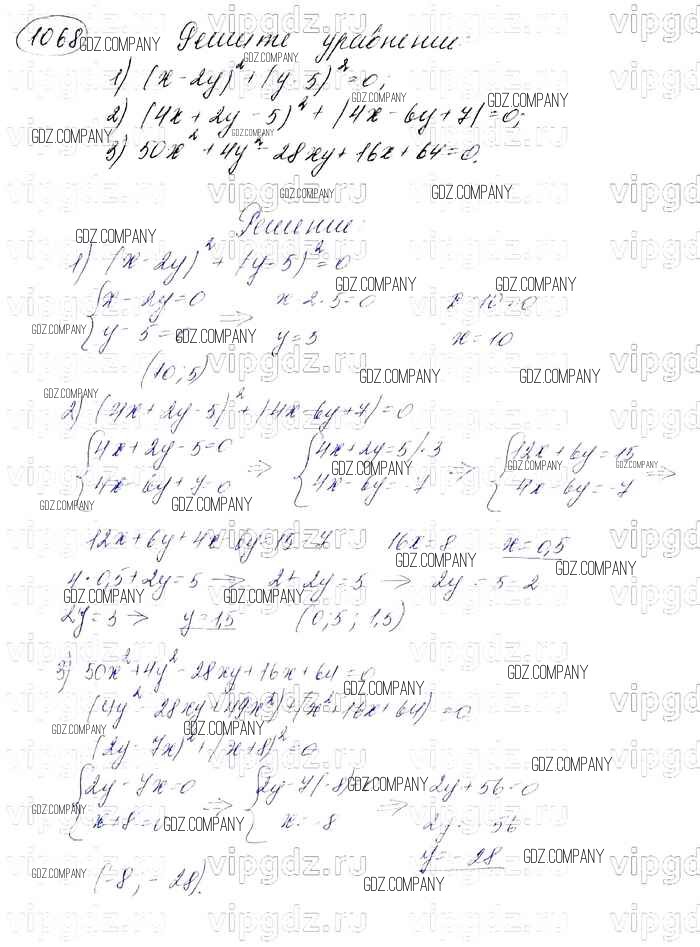 1068 Решите уравнение:
1) (x-2y)²+(y-5)²=0;
2) (4x+2y-5)²+|4x-6y+7|=0;
3) 50x²+4y²-28xy+16x+64=0.
Решение:
1) (x-2y)²+(y-5)²=0
{x-2y=0 x-2·5=0 x-10=0
y-5=0 => y=5 x=10
(10,5)
2) (4x+2y-5)²+|4x-6y+7|=0
{4x+2y-5=0 {4x+2y=5|·3 {12x+6y=15
4x-6y+7=0 => 4x-6y=-7 => 4x-6y=-7 =>
12x+6y+4x-6y=15-7 16x=8 x=0,5
4·0,5+2y=5 -> 2+2y=5 -> 2y=5-2
2y=3 -> y=1,5 (0,5; 1,5)
3) 50x²+4y²-28xy+16x+64=0
(4y²-28xy+49x²)+(x²+16x+64)=0
(2y-7x)²+(x+8)²=0
{2y-7x=0 {2y-7(-8)=0 2y+56=0
x+8=0 => x=-8 => 2y=-56
y=-28
(-8; -28).
GDZ.COMPANY
vipgdz.ru